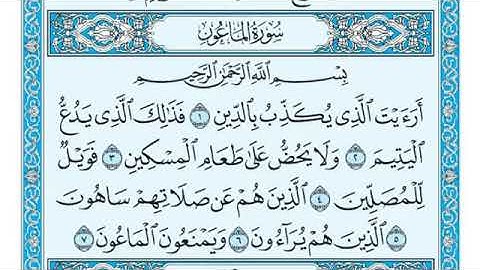 سُورَةُ المَاعُونِ
بِسْمِ اللَّهِ الرَّحْمَٰنِ الرَّحِيمِ
أَرَءَيْتَ الَّذِي يُكَذِّبُ بِالدِّينِ ١ فَذَٰلِكَ الَّذِي يَدُعُّ
الْيَتِيمَ ٢ وَلَا يَحُضُّ عَلَىٰ طَعَامِ الْمِسْكِينِ ٣ فَوَيْلٌ
لِّلْمُصَلِّينَ ٤ الَّذِينَ هُمْ عَن صَلَاتِهِمْ سَاهُونَ
٥ الَّذِينَ هُمْ يُرَآءُونَ ٦ وَيَمْنَعُونَ الْمَاعُونَ ٧